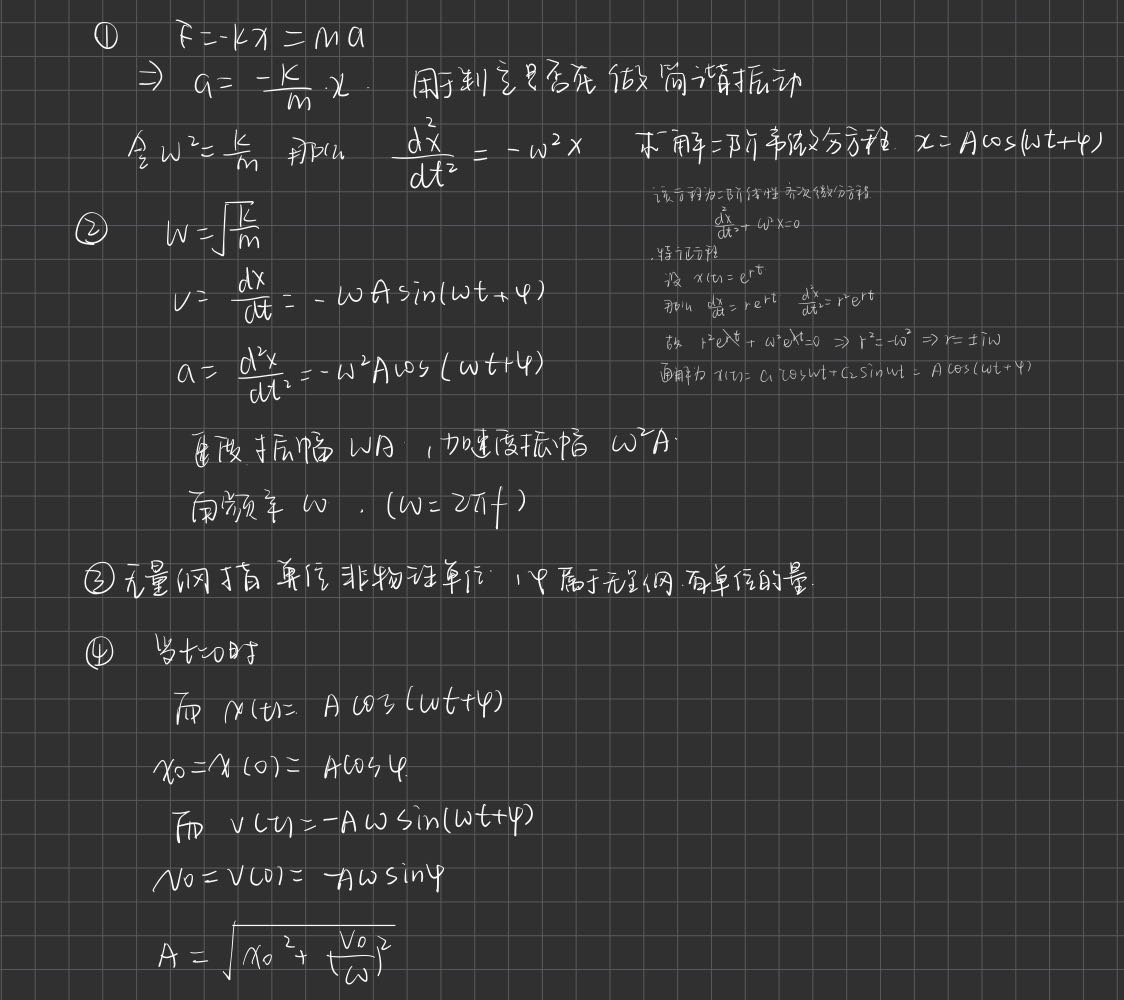 ① F=-kx=ma
⇒ a=-k/m·x. 用于判定是否在做简谐振动
令ω²=k/m 那么 d²x/dt²=-ω²x 求解二阶常微分方程 x=Acos(ωt+φ)
该方程为二阶线性齐次微分方程
d²x/dt²+ω²x=0
特征方程
设 x(t)=e^{rt}
那么 dx/dt=re^{rt} d²x/dt²=r²e^{rt}
故 r²e^{λt}+ω²e^{λt}=0 ⇒ r²=-ω² ⇒ r=±iω
通解为 x(t)=C₁cosωt+C₂sinωt=Acos(ωt+φ)
② ω=√(k/m)
v=dx/dt=-ωAsin(ωt+φ)
a=d²x/dt²=-ω²Acos(ωt+φ)
速度振幅 ωA,加速度振幅 ω²A.
角频率 ω.(ω=2πf)
③ 无量纲指单位非物理单位,φ属于无量纲有单位的量.
④ 当t=0时
而 x(t)=Acos(ωt+φ)
x₀=x(0)=Acosφ.
而 v(t)=-Aωsin(ωt+φ)
v₀=v(0)=-Aωsinφ
A=√(x₀²+(v₀/ω)²)